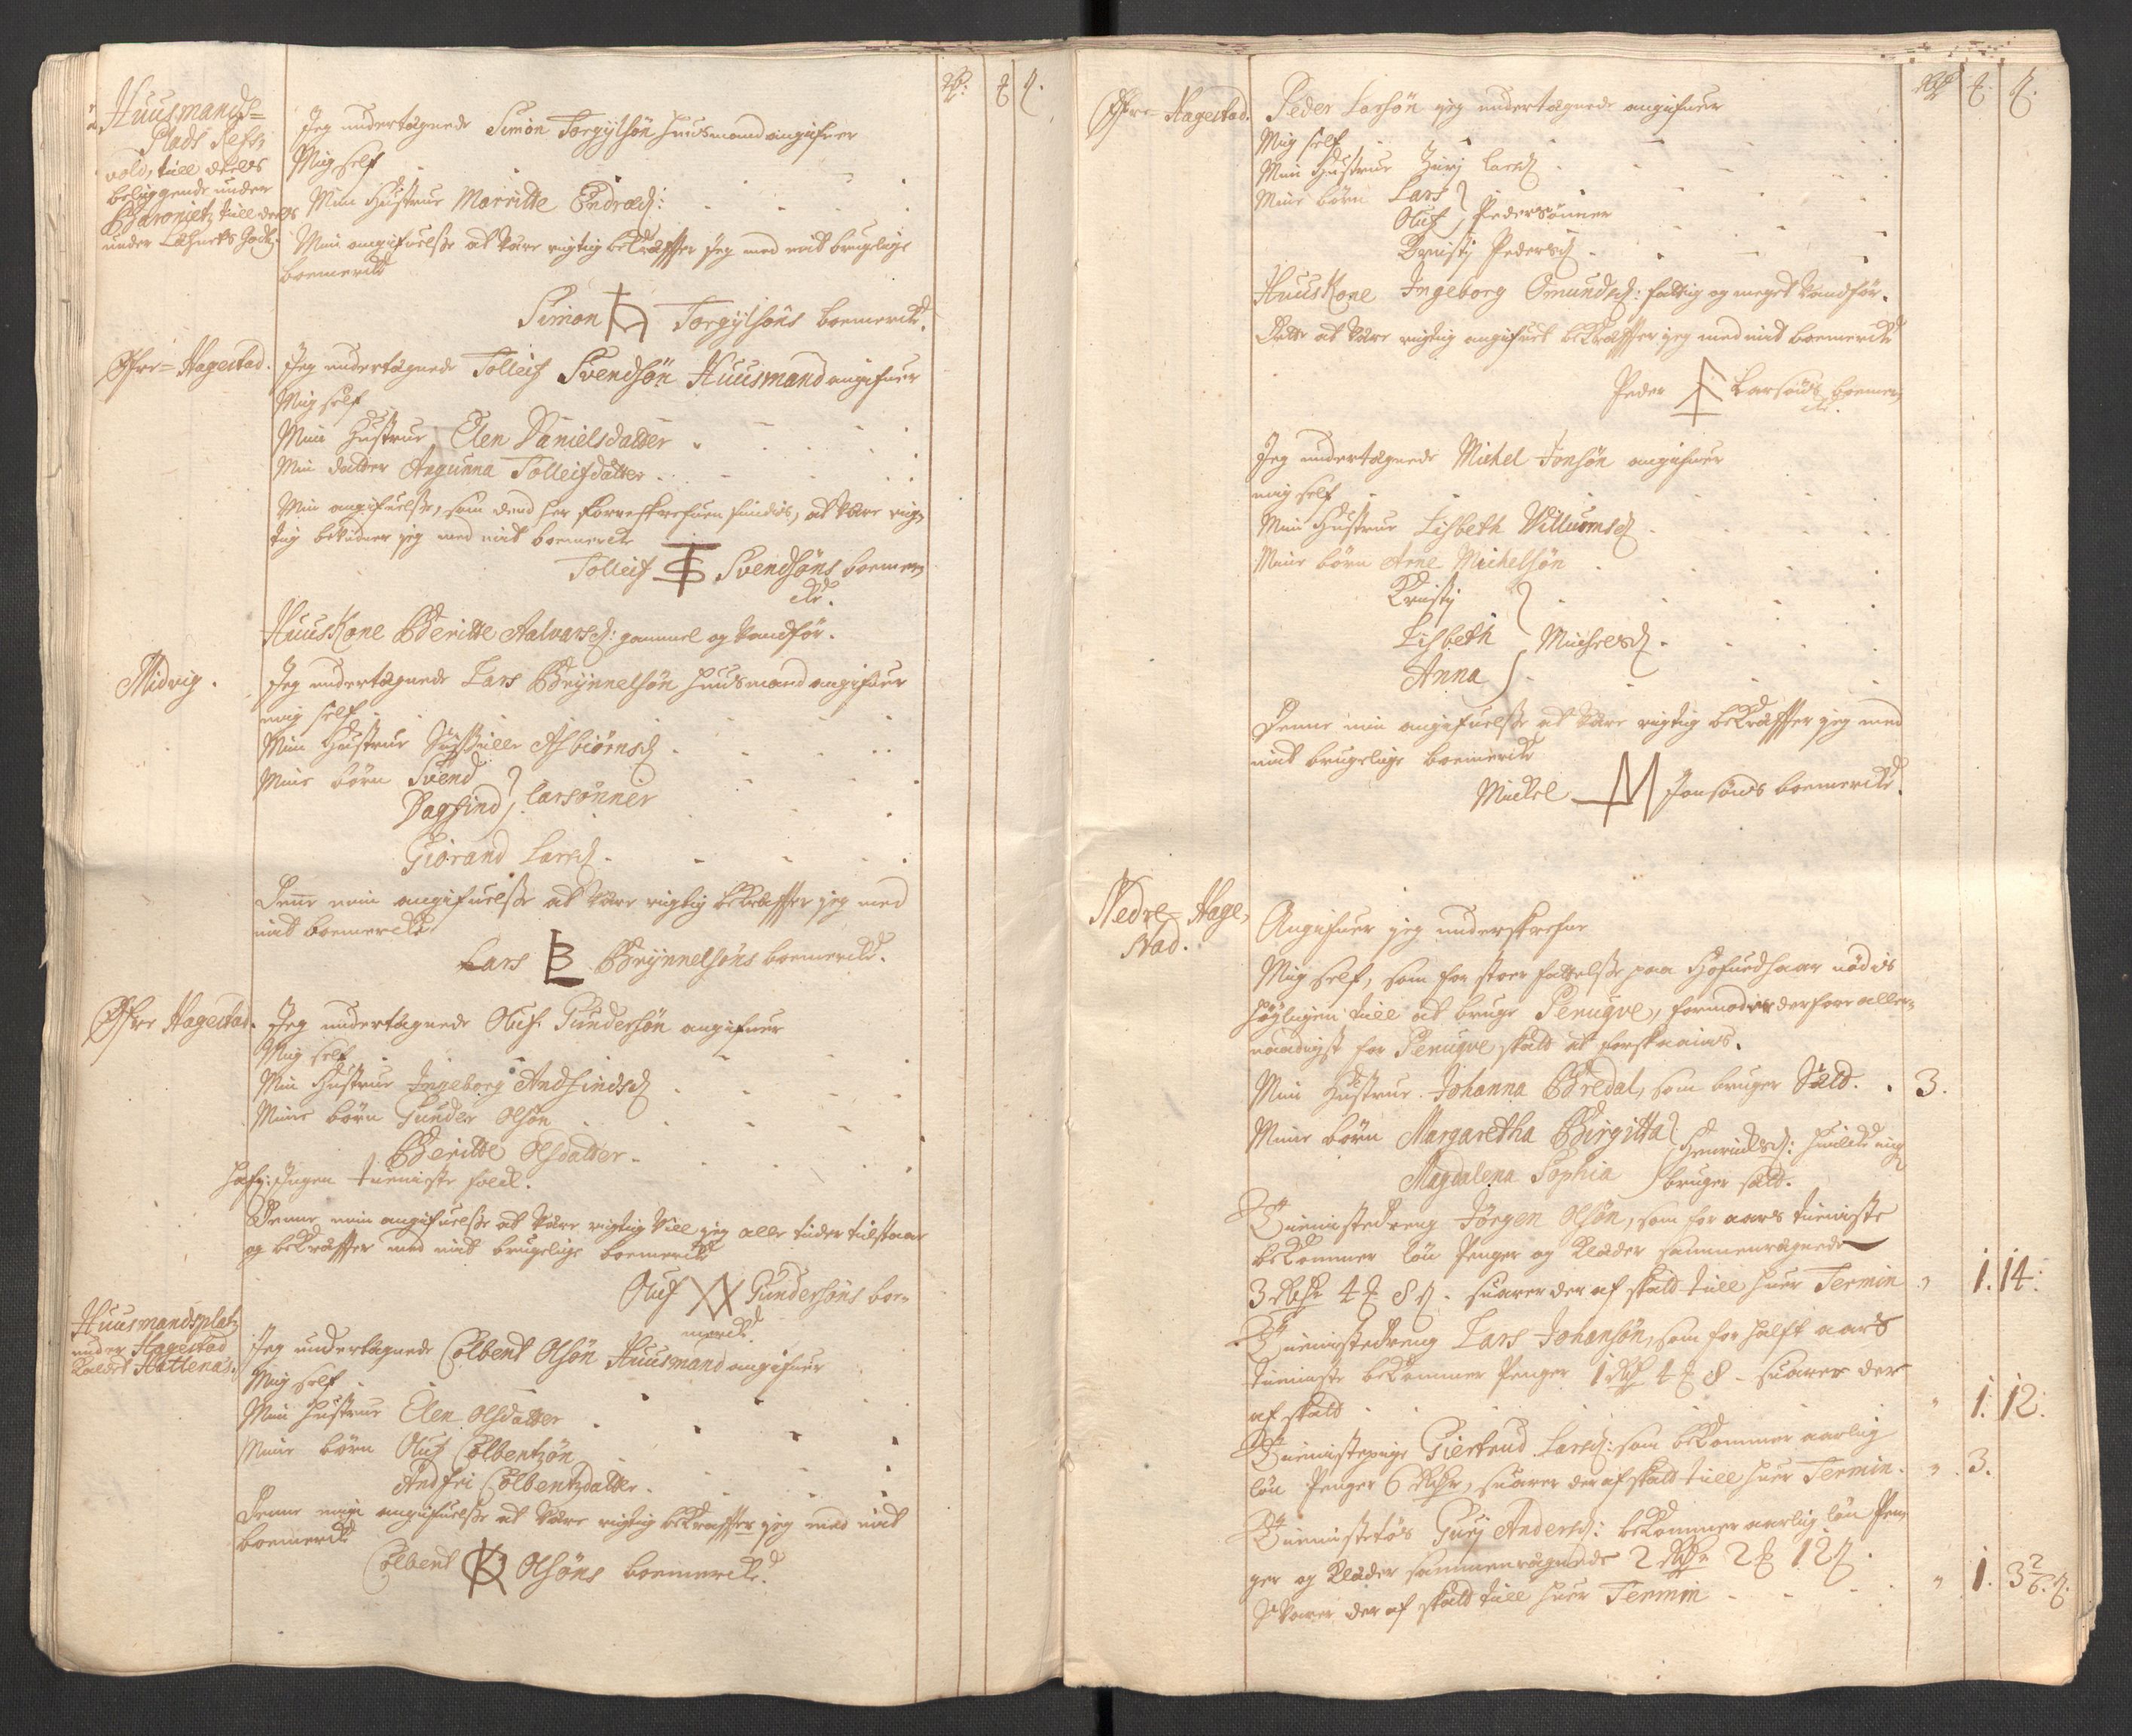 Rdr: ₰ ß.
Huusmands=
Plads Refs,
vold, till deels
beliggende under
Baroniet, till deels
under Lehnets Godtz.
Jeg undertegnede Simon Torgylsøn huusmand angifuer
Mig self
Min Hustrue Marritte Endræd:
Min angifuelsse at være rigtig bekræffter jeg med mit brugelige
boemerke
Simon Torgylsøns boemercke.
Øfre=Hagestad.
Jeg undertegnede Tolleif Svendsøn Huusmand angifuer
Mig self
Min Hustrue Elen Danielsdatter
Min datter Angunna Tolleifdatter
Min angifuelsse, som dend her forreskrefuen findis, at være rig,
tig bekiender jeg med mit boemercke
Tolleif Svendsøns boemer,
cke.
Huuskone Beritte Aalvarsd: gammel og vanfør.
Midvig.
Jeg undertegnede Lars Brynnelsøn huusmand angifuer
mig self
Min Hustrue Sissille Asbiørnsd
Mine børn Svend
Dagfind Larsønner
Giørand Larsd
Denne min angifuelsse at være rigtig bekræffter jeg med
mit boemercke
Lars Brynnelsøns boemercke.
Øfre Hagestad.
Jeg undertegnede Oluf Gundersøn angifuer
Mig self
Min Hustrue Ingeborg Andfindsd
Mine børn Gunder Olsøn
Beritte Olsdatter
hafr: Ingen tieniste folck.
Denne min angifuelsse at være rigtig vill jeg alle tider tilstaae
og bekræffter med mit brugelige boemercke
Oluf Gundersøns boe=
mercke.
Huusmandsplatz
under Hagestad
kaldet Hattenæs.
Jeg undertegnede Colbent Olsøn Huusmand angifuer
Mig self
Min Hustrue Elen Olsdatter
Mine børn Oluf Colbentzøn
Andfri Colbentzdatter
Denne min angifuelsse at være rigtig bekræffter jeg med mit
boemercke
Colbent Olsøns boemercke.
Rdr ₰ ß.
Øfre=Hagestad.
Peder Larsøn jeg undertegnede angifuer
Mig self
Min Hustrue Zirj Larsd
Mine børn Lars
Oluf Pedersønner
Kristj Pedersd
Huuskone Ingeborg Omundsd: fattig og meget vandfør.
Dette at være rigtig angifuet bekræffter jeg med mit boemercke
Peder Larsøns boemer,
cke.
Jeg undertegnede Michel Jonsøn angifuer
mig self
Min Hustrue Lisbeth Villumsd
Mine børn Arne Michelsøn
Kristj
Lisbeth Michelsd
Anna
Denne min angifuelsse at være rigtig bekræffter jeg med
mit brugelige boemercke
Mickel Jonsøns boemercke.
Nedre=Hage,
stad.
Angifuer jeg underskrefne
Mig self, som for stoer fattelsse paa Hofuedhaar nødis
høyligen till at bruge Peruqve, formoder derfore aller=
naadigst for Peruqve skatt at forskaanis.
Min Hustrue Johanna Bredal, som bruger Satt. 3.
Mine børn Margaretha Birgitta
Magdalena Sophia Henrichsd: huilcke ey
bruger satt.
Tienistedreng Jørgen Olsøn, som for aars tieniste
bekommer løn Penger og Klæder sammenregnede
3 Rdr 4 ₰ 8 ß. suarer der af skatt till huer Termin " 1. 14:
Tienistedreng Lars Johansøn, som for halft aars
tieniste bekommer Penger 1 Rdr 4 ₰ 8 - suarer der
af skatt " 1. 12:
Tienistepige Giertrud Larsd: som bekommer aarlig
løn Penger 6 Rdr, suarer der af skatt till huer Termin " 3.
Tienistetøs Gurj Andersd: bekommer aarlig løn Pen,
ger og Klæder sammenregnede 2 Rdr 2 ₰ 12 ß.
Svarer der af skatt till huer Termin " 1. 3 2/6. ß.